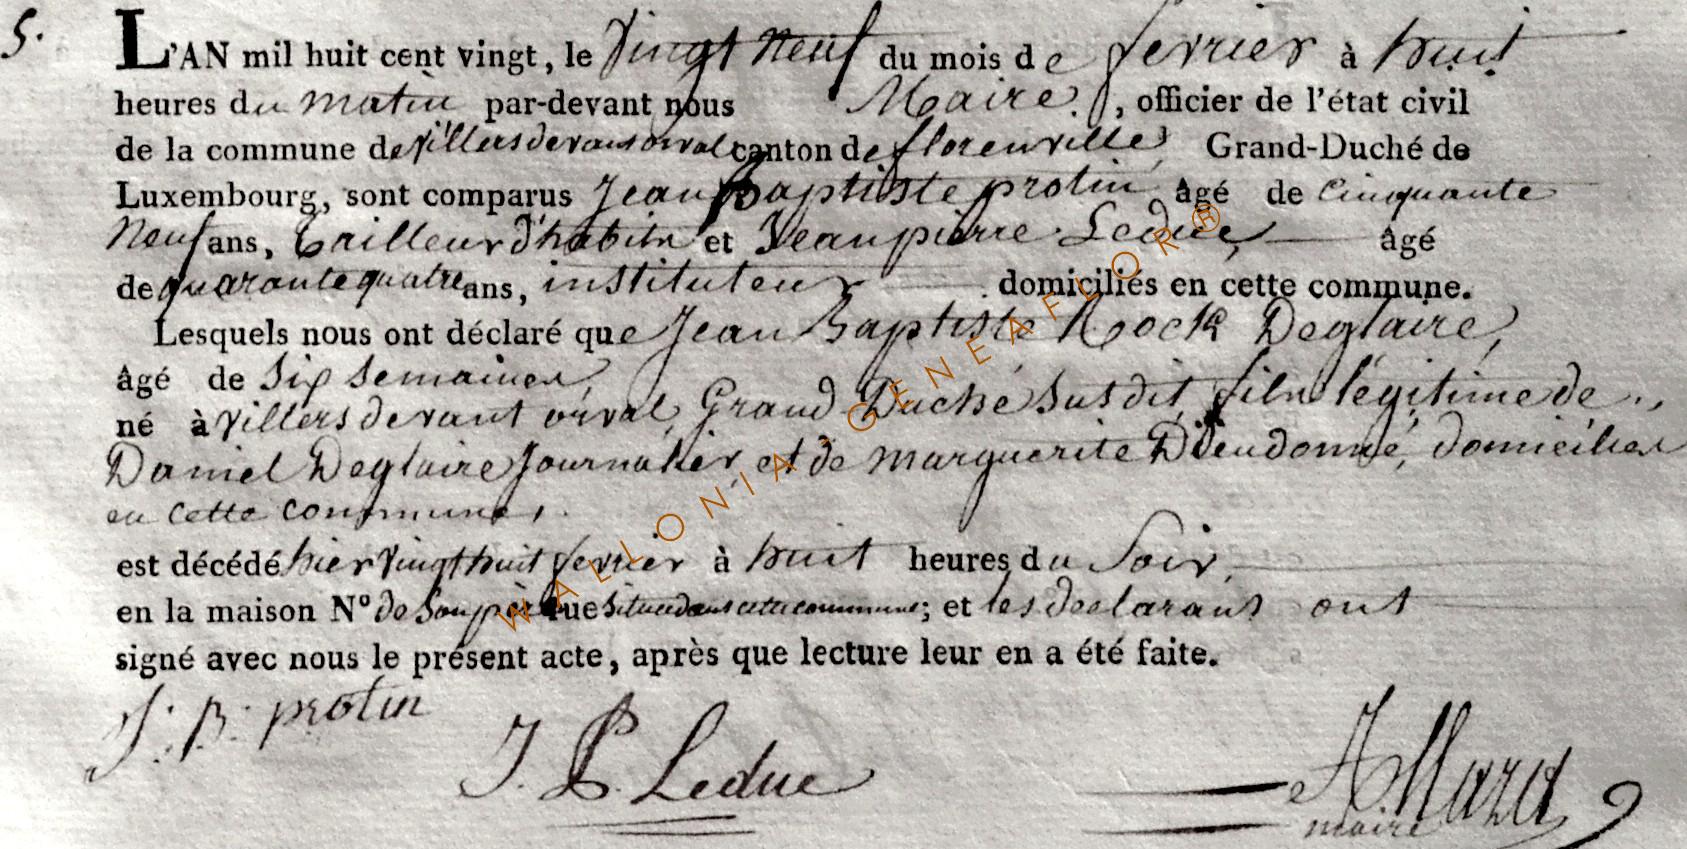 5.
L'AN mil huit cent vingt, le Vingt Neuf du mois de fevrier à huit
heures du matin par-devant nous Maire, officier de l'état civil
de la commune de Villers devant orval canton de florenville, Grand-Duché de
Luxembourg, sont comparus Jean Baptiste protin âgé de Cinquante
Neuf ans, tailleur d'habits et Jean pierre Leduc, âgé
de quarante quatre ans, instituteur domiciliés en cette commune.
Lesquels nous ont déclaré que Jean Baptiste Rock Deglaire,
âgé de Six semaines,
né à villers devant orval, Grand Duché susdit, fils légitime de
Daniel Deglaire Journalier, et de marguerite Dieudonné, domiciliés
en cette commune,
est décédé hier Vingt huit fevrier à huit heures du Soir,
en la maison N° de rue située dans cette commune; et les declarans ont
signé avec nous le présent acte, après que lecture leur en a été faite.
J: B: protin
J. P. Leduc
maire
WALLONIA GENEAFLOR®